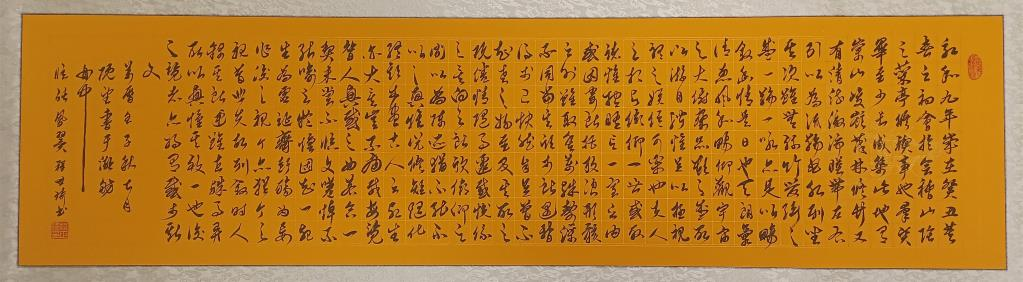 永和九年歲在癸丑暮
春之初會於會稽山陰
之蘭亭脩禊事也羣賢
畢至少長咸集此地有
崇山峻嶺茂林脩竹又
有清流激湍映帶左右
引以為流觴曲水列坐
其次雖無絲竹管絃之
盛一觴一詠亦足以暢
敘幽情是日也天朗氣
清惠風和暢仰觀宇宙
之大俯察品類之盛所
以遊目騁懷足以極視
聽之娛信可樂也夫人
之相與俯仰一世或取
諸懷抱悟言一室之內
或因寄所託放浪形骸
之外雖趣舍萬殊靜躁
不同當其欣於所遇暫
得於己快然自足不
知老之將至及其所之
既倦情隨事遷感慨係
之矣向之所欣俛仰之
間以為陳迹猶不能不
以之興懷況脩短隨化
終期於盡古人云死生
亦大矣豈不痛哉每覽
昔人興感之由若合一
契未嘗不臨文嗟悼不
能喻之於懷固知一死
生為虛誕齊彭殤為妄
作後之視今亦猶今之
視昔悲夫故列敘時人
錄其所述雖世殊事異
所以興懷其致一也後
之覽者亦將有感於斯
文
萬曆壬子秋七月
晚坐書于
舟中
臨 書